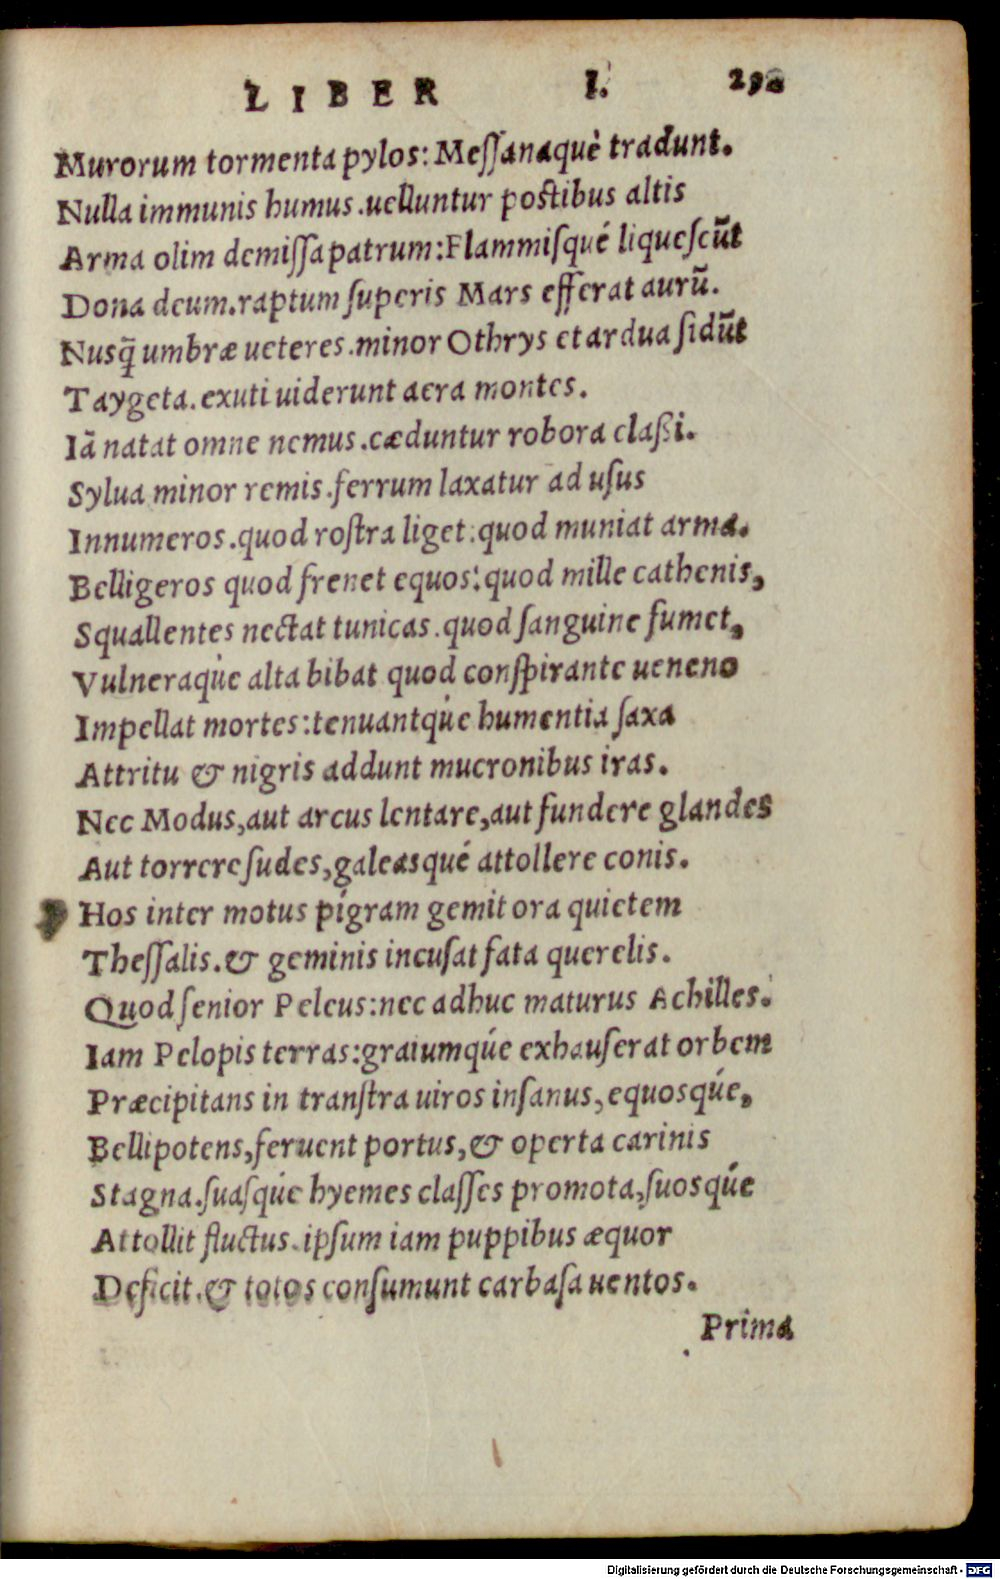 LIBER I.
Murorum tormenta pylos: Meſſanaquè tradunt.
Nulla immunis humus.uelluntur poſtibus altis
Arma olim demiſſa patrum:Flammiſqué liqueſcũt
Dona deum.raptum ſuperis Mars efferat aurũ.
Nusq̃ umbræ ueteres.minor Othrys et ardua ſidũt
Taygeta.exuti uiderunt aera montes.
Iã natat omne nemus.cæduntur robora claßi.
Sylua minor remis.ferrum laxatur ad uſus
Innumeros.quod roſtra liget:quod muniat arma.
Belligeros quod frenet equos:quod mille cathenis,
Squallentes nectat tunicas.quod ſanguine fumet,
Vulneraqùe alta bibat quod conſpirante ueneno
Impellat mortes:tenuantqùe humentia ſaxa
Attritu & nigris addunt mucronibus iras.
Nec Modus,aut arcus lentare,aut fundere glandes
Aut torrere ſudes,galeasqué attollere conis.
Hos inter motus pígram gemit ora quietem
Theſſalis.& geminis incuſat fata querelis.
Quod ſenior Peleus:nec adhuc maturus Achilles.
Iam Pelopis terras:graiumqúe exhauſerat orbem
Præcipitans in tranſtra uiros inſanus,equosqúe,
Bellipotens,feruent portus,& operta carinis
Stagna.ſuaſqúe hyemes claſſes promota,ſuosqúe
Attollit fluctus.ipſum iam puppibus æquor
Deficit.& totos conſumunt carbaſa uentos.
Prima
Digitalisierung gefördert durch die Deutsche Forschungsgemeinschaft - DFG